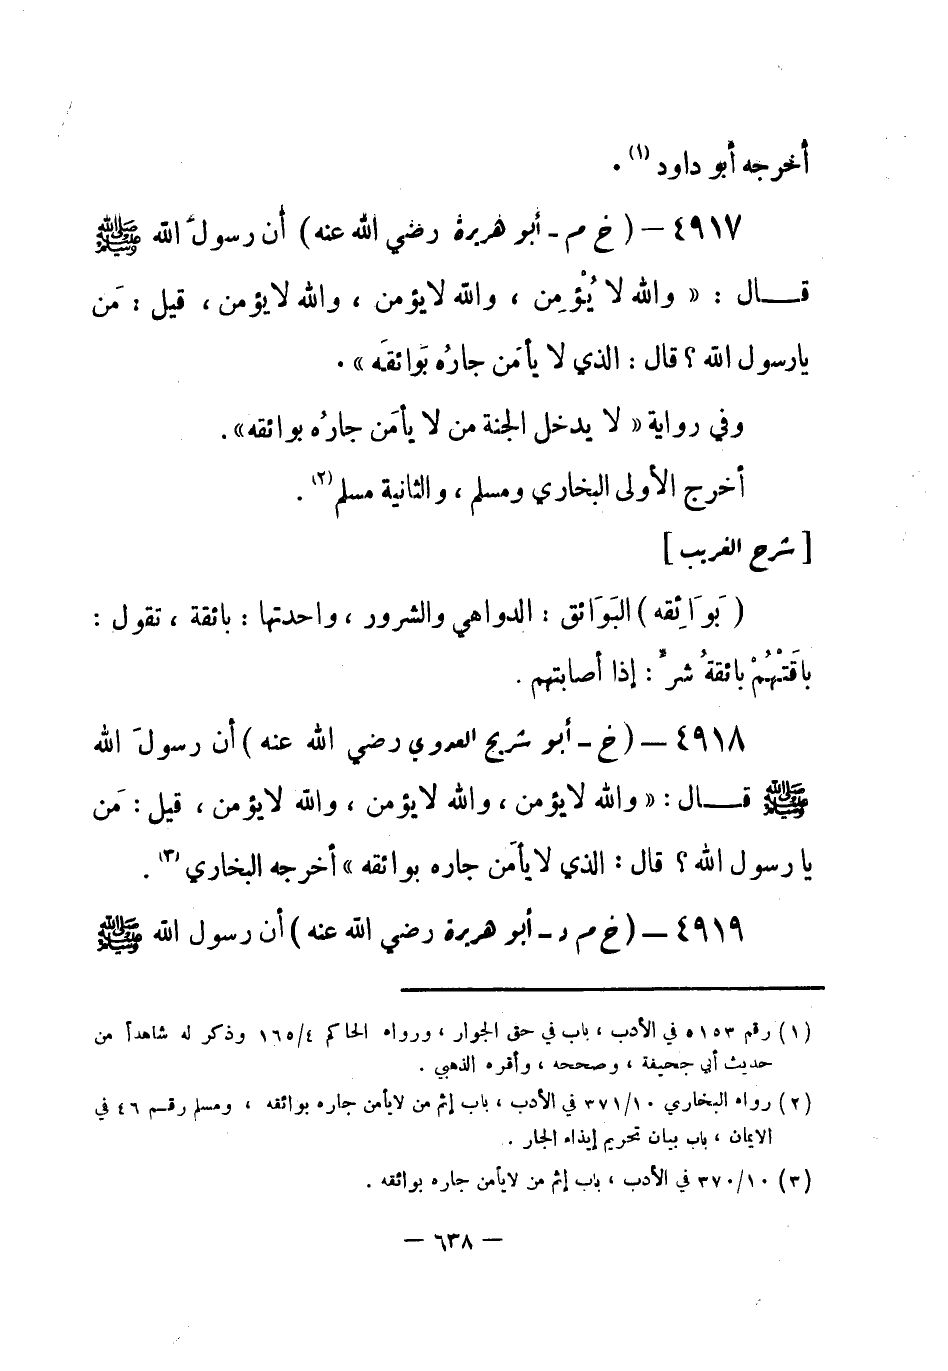 أخرجه أبو داود (١) .
٤٩١٧ — ( خ م - أبو هريرة رضي الله عنه ) أن رسولَ الله ﷺ
قـــال : « والله لا يُؤْمِن ، والله لايؤمن ، والله لايؤمن ، قيل : مَن
يارسول الله ؟ قال : الذي لا يأمَن جارُه بَوائقَه » .
وفي رواية « لا يدخل الجنة من لا يأمَن جارُه بوائقه» .
أخرج الأولى البخاري ومسلم ، والثانية مسلم (٢) .
[ شرح الغريب ]
( بَوَائِقه ) البَوَائق : الدواهي والشرور ، واحدتها : بائقة ، تقول :
باقَتْهُمْ بائقةُ شرٍّ : إذا أصابتهم .
٤٩١٨ — ( خ - أبو شريح العدوي رضي الله عنه ) أن رسولَ الله
ﷺ قـــال : « والله لايؤمن ، والله لايؤمن ، والله لايؤمن ، قيل : مَن
يا رسول الله ؟ قال : الذي لايأمَن جاره بوائقه » أخرجه البخاري (٣) .
٤٩١٩ — ( خ م د - أبو هريرة رضي الله عنه ) أن رسول الله ﷺ
(١) رقم ٥١٥٣ في الأدب ، باب في حق الجوار ، ورواه الحاكم ١٦٥/٤ وذكر له شاهداً من
حديث أبي جحيفة ، وصححه ، وأقره الذهبي .
(٢) رواه البخاري ٣٧١/١٠ في الأدب ، باب إثم من لايأمن جاره بوائقه ، ومسلم رقم ٤٦ في
الايمان ، باب بيان تحريم إيذاء الجار .
(٣) ٣٧٠/١٠ في الأدب ، باب إثم من لايأمن جاره بوائقه .
— ٦٣٨ —